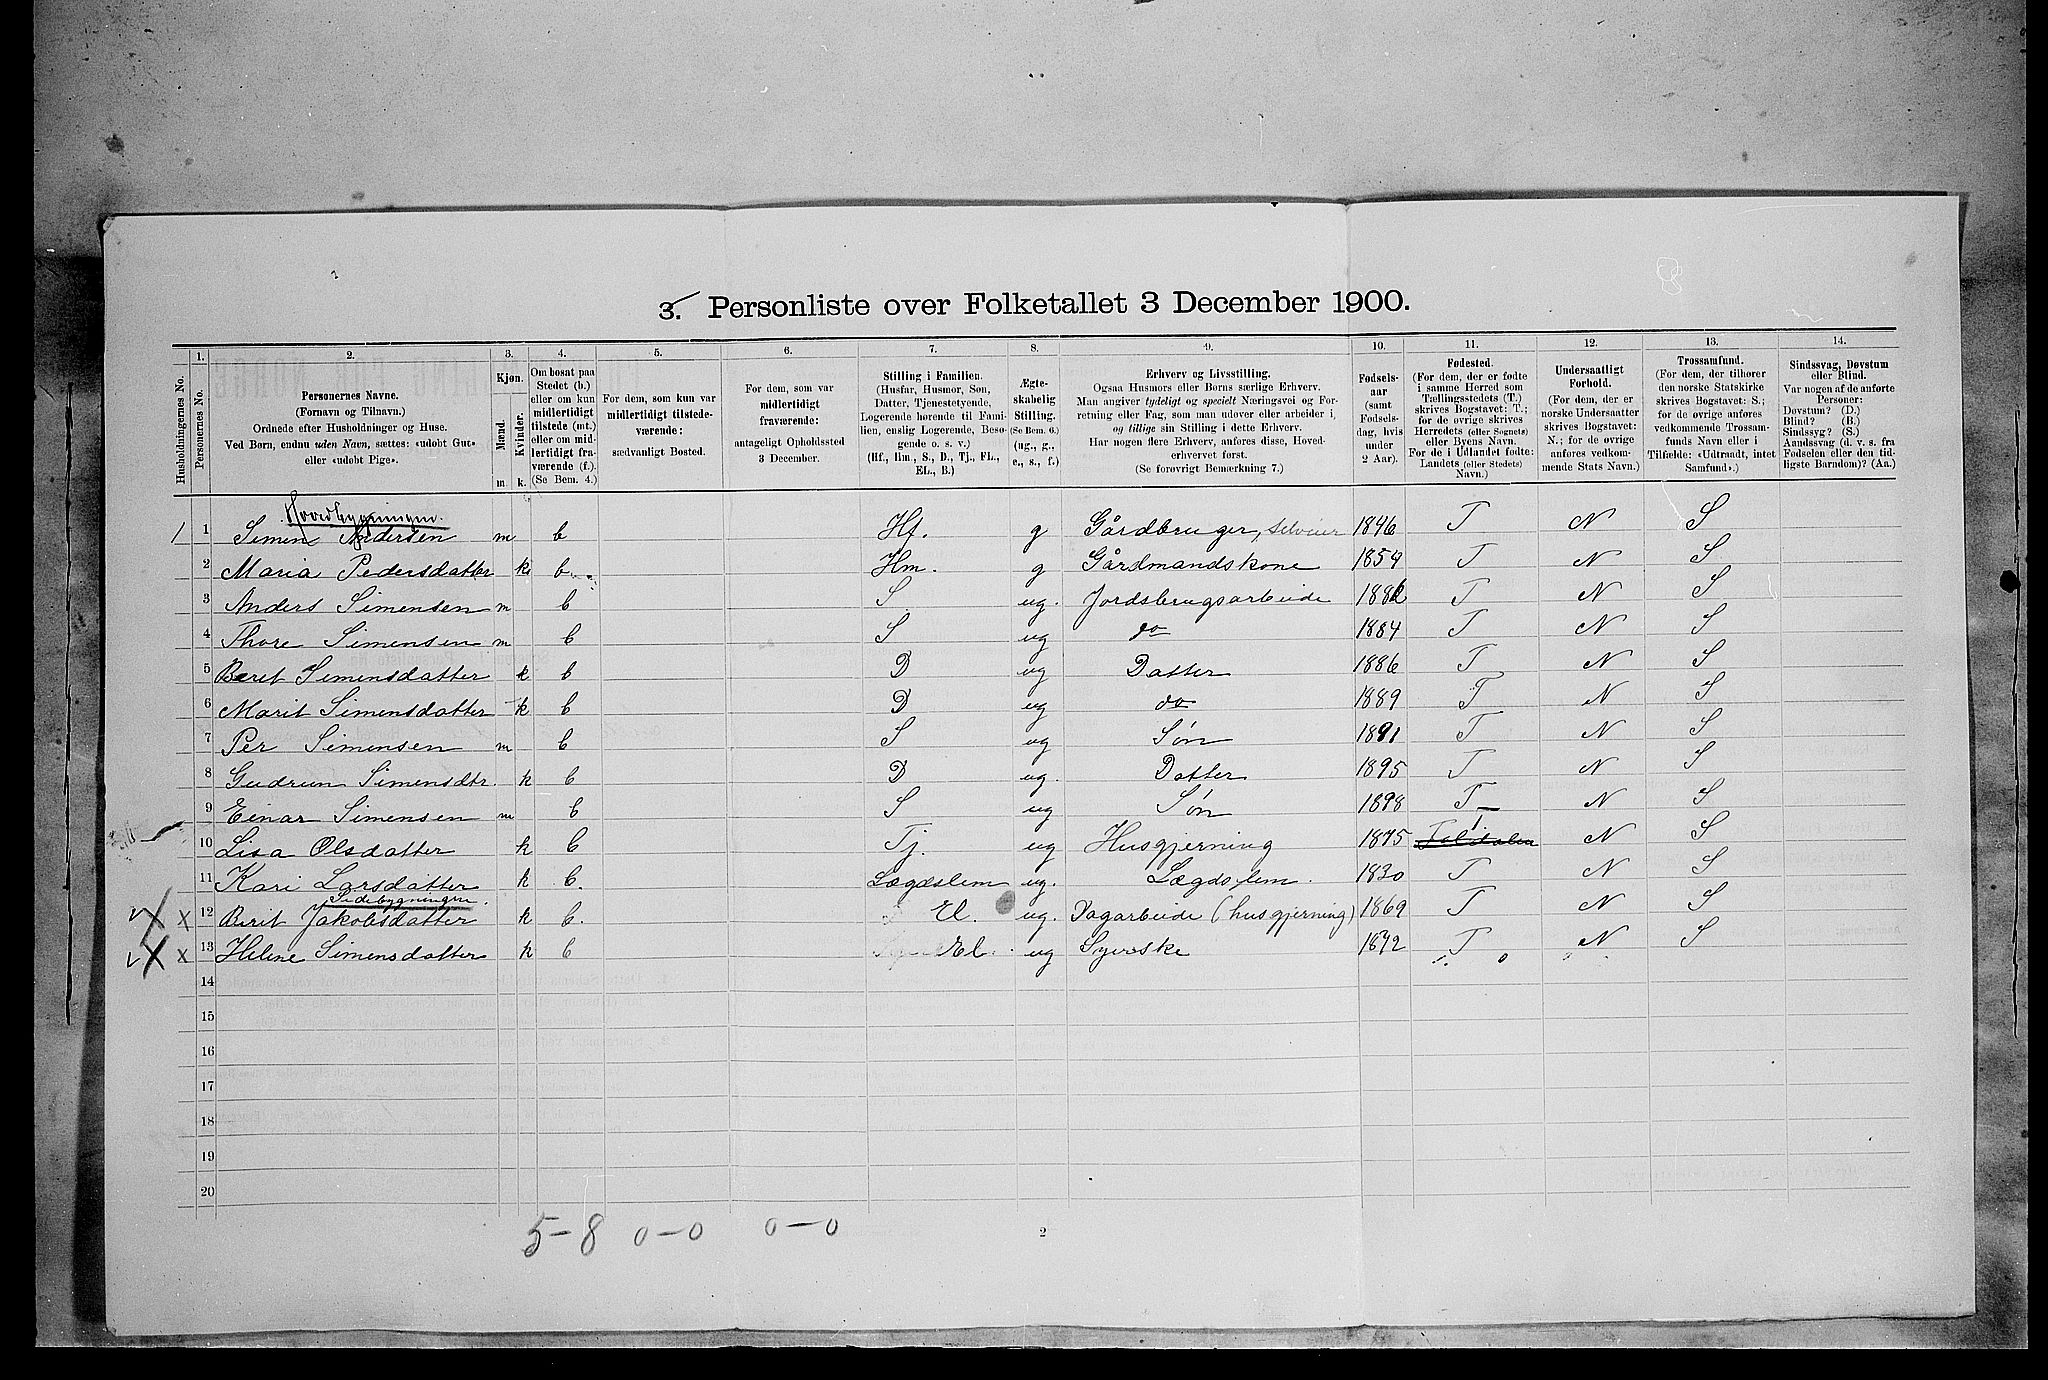 3. Personliste over Folketallet 3 December 1900.
1. 2. 3. 4. 5. 6. 7. 8. 9. 10. 11. 12. 13. 14.
Husholdningernes No.
Personernes No.
Personernes Navne.
(Fornavn og Tilnavn.)
Ordnede efter Husholdninger og Huse.
Ved Børn, endnu uden Navn, sættes: «udøbt Gut»
eller «udøbt Pige».
Kjøn.
Mænd. Kvinder.
m k.
Om bosat paa
Stedet (b.)
eller om kun
midlertidigt
tilstede (mt.)
eller om mid-
lertidigt fra-
værende (f.).
(Se Bem. 4.)
For dem, som kun var
midlertidigt tilstede-
værende:
sædvanligt Bosted.
For dem, som var
midlertidigt
fraværende:
antageligt Opholdssted
3 December.
Stilling i Familien.
(Husfar, Husmor, Søn,
Datter, Tjenestetyende,
Logerende hørende til Fami-
lien, enslig Logerende, Besø-
gende o. s. v.)
(Hf., Hm., S., D., Tj., FL.,
EL., B.)
Ægte-
skabelig
Stilling.
(Se Bem. 6.)
(ug., g.,
e., s., f.)
Erhverv og Livsstilling.
Ogsaa Husmors eller Børns særlige Erhverv.
Man angiver tydeligt og specielt Næringsvei og For-
retning eller Fag, som man udøver eller arbeider i,
og tillige sin Stilling i dette Erhverv.
Har nogen flere Erhverv, anføres disse, Hoved-
erhvervet først.
(Se forøvrigt Bemærkning 7.)
Fødsels-
aar
(samt
Fødsels-
dag, hvis
under
2 Aar).
Fødested.
(For dem, der er fødte
i samme Herred som
Tællingsstedets (T.)
skrives Bogstavet: T.;
for de øvrige skrives
Herredets (eller Sognets)
eller Byens Navn.
For de i Udlandet fødte:
Landets (eller Stedets)
Navn.)
Undersaatligt
Forhold.
(For dem, der er
norske Undersaatter
skrives Bogstavet:
N.; for de øvrige
anføres vedkom-
mende Stats Navn.)
Trossamfund.
(For dem, der tilhører
den norske Statskirke
skrives Bogstavet: S.;
for de øvrige anføres
vedkommende Trossam-
funds Navn eller i
Tilfælde: «Udtraadt, intet
Samfund».)
Sindssvag, Døvstum
eller Blind.
Var nogen af de anførte
Personer:
Døvstum? (D.)
Blind? (B.)
Sindssyg? (S.)
Aandssvag (d. v. s. fra
Fødselen eller den tid-
ligste Barndom)? (Aa.)
Hovedbygningen.
1 1 Simen Andersen m b Hf. g Gårdbruger, selveier 1846 T N S
2 Maria Pedersdatter k b. Hm. g Gårdmandskone 1854 T N S
3 Anders Simensen m b S ug. Jordsbrugsarbeide 1882 T N S
4 Thore Simensen m b S ug do 1884 T N S
5 Beret Simensdatter k b D ug Datter 1886 T N S
6 Marit Simensdatter k b D ug do 1889 T N S
7 Per Simensen m b S ug Søn 1891 T N S
8 Gudrun Simensdtr. k b D ug. Datter 1895 T N S
9 Einar Simensen m b S ug Søn 1898 T N S
10 Lisa Olsdatter k b Tj. ug Husgjerning 1875 T N S
11 Kari Larsdatter k b. Lægdslem ug. Lægdslem. 1830 T N S
Sidebygningen.
x 12 Berit Jakobsdatter k b. El. ug. Dagarbeide (husgjerning) 1869 T N S
x 13 Helene Simensdatter k b El. ug Syerske 1872 T N S
14
15
16
17
18
19
20
5–8 0–0 0–0
2